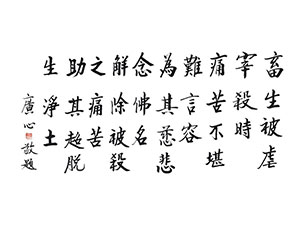 畜生被虐
宰殺時
痛苦不堪
難言容
為其慈悲
念佛名
解除被殺
之痛苦
助其超脫
生淨土
廣心敬題